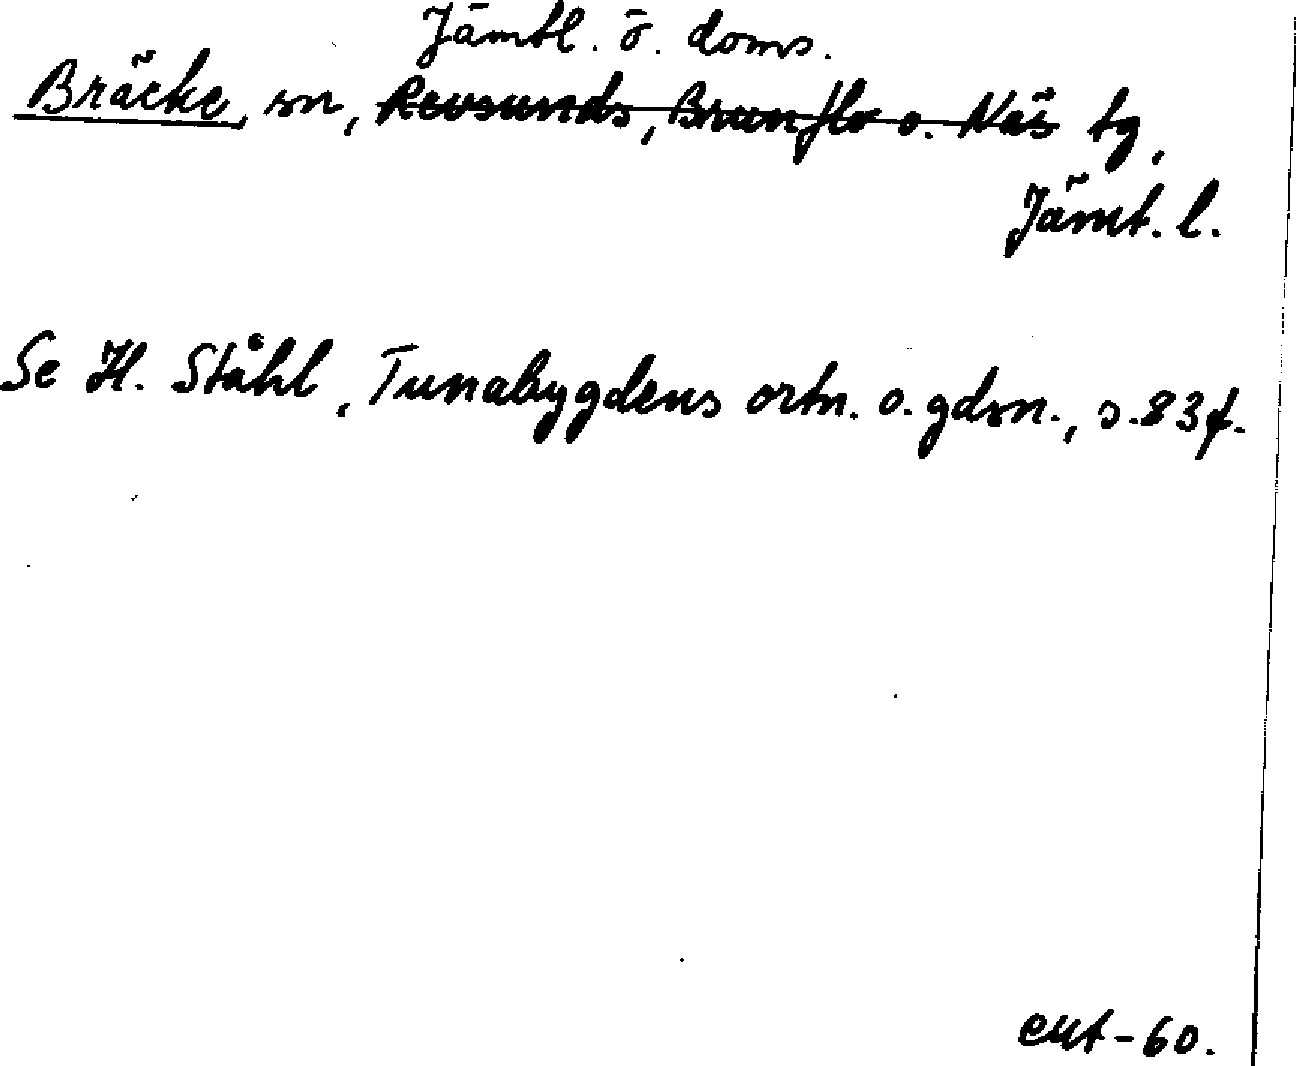 Jämtl. ö. doms.
Bräcke, sn, Revsunds, Brunflo o. Näs tg,
Jämt. l.
Se H. Ståhl, Tunabygdens ortn. o. gdsn., s. 83 f.
eut-60.